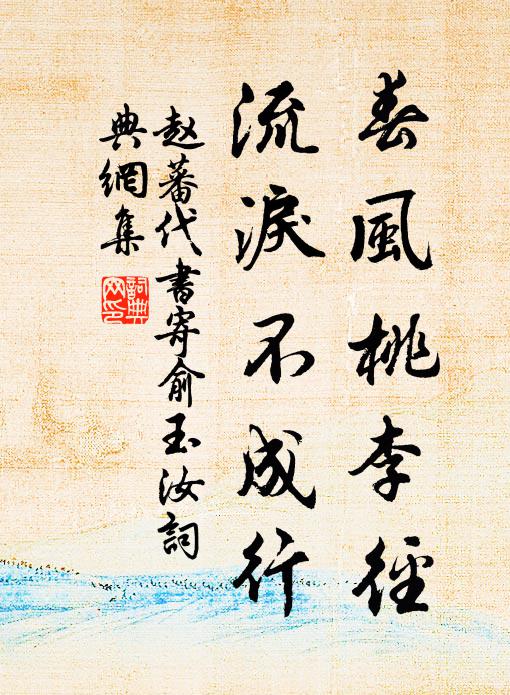 春風桃李徑
流淚不成行
赵蕃代書寄俞玉汝詞
典網集
詞典
网印